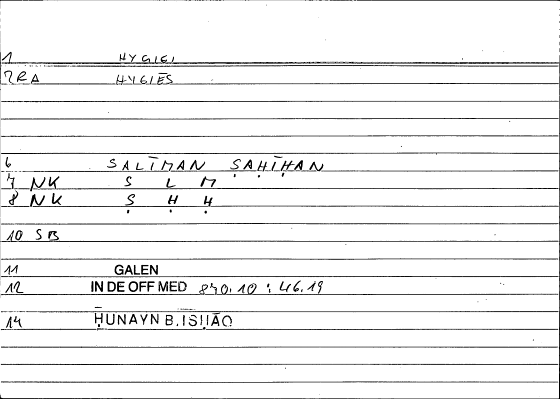 1 HYGIGI
2RA HYGIĒS
6 SALĪMAN ṢAḤĪḤAN
7 NK S L M
8 NK Ṣ Ḥ Ḥ
10 SB
11 GALEN
12 IN DE OFF MED 870.10 : 46.19
14 ḤUNAYN B.ISḤĀQ